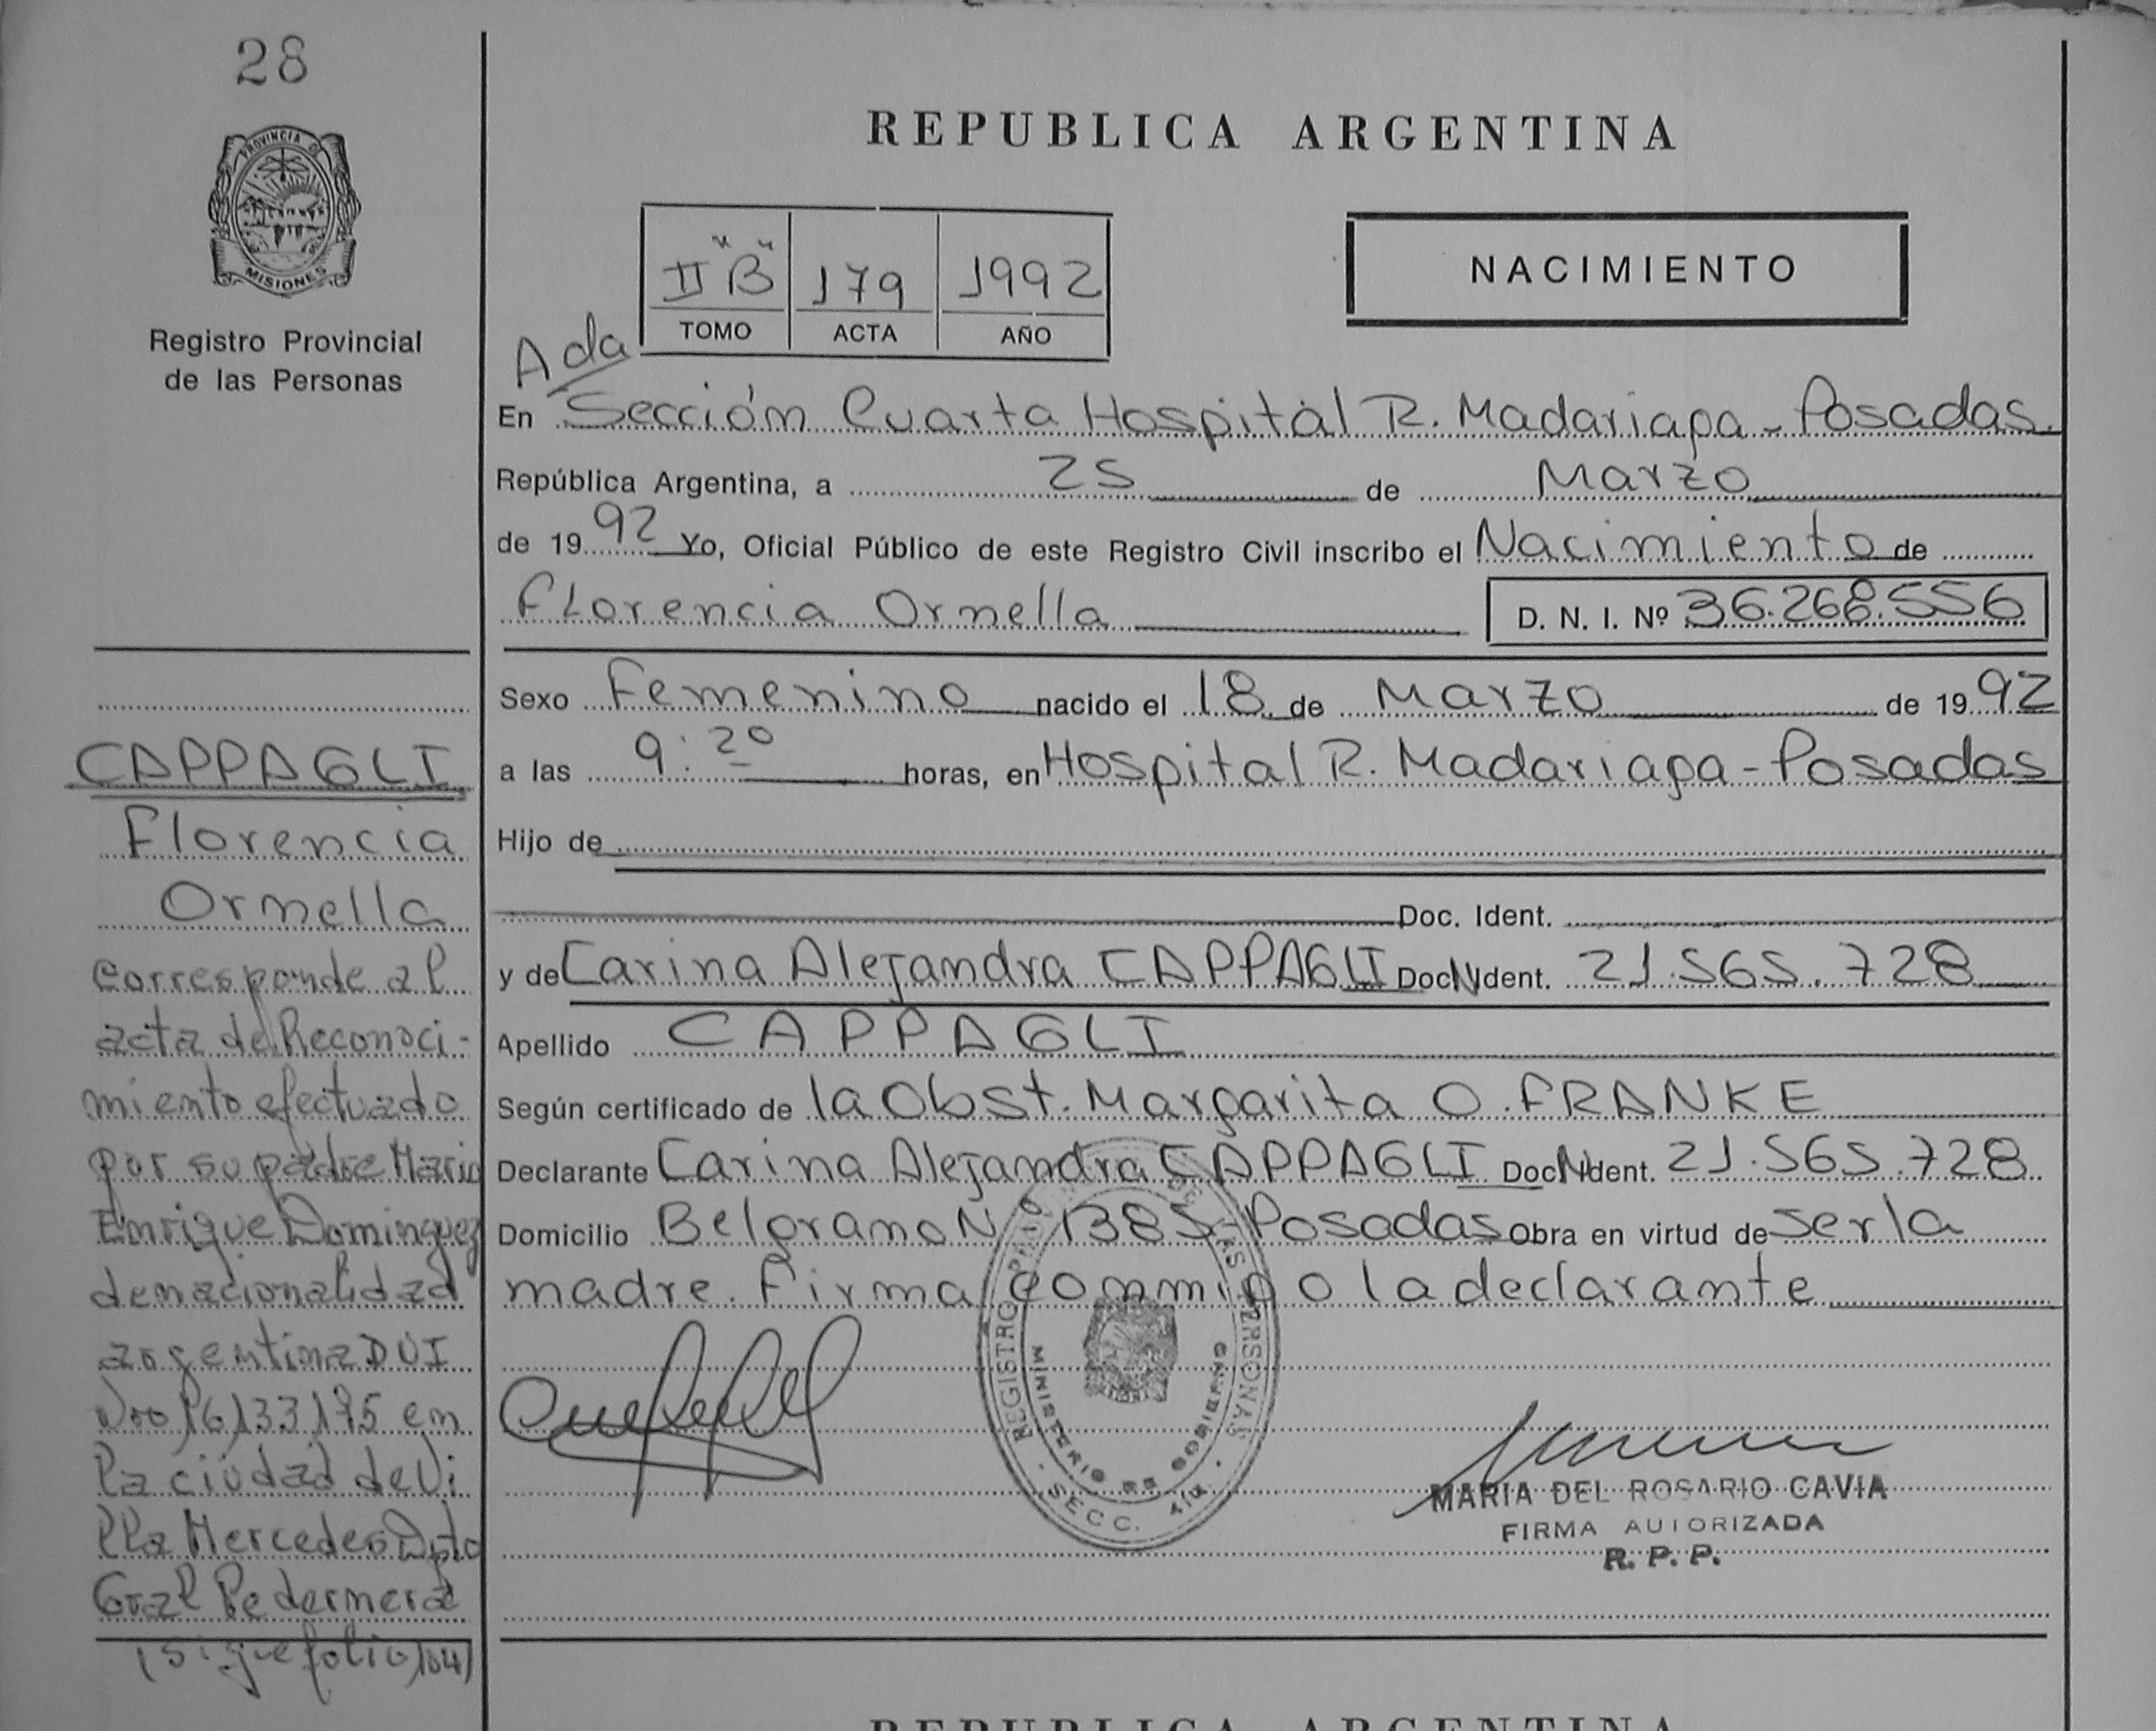 28
PROVINCIA D
MISIONES
Registro Provincial
de las Personas
REPUBLICA ARGENTINA
II "B"
179
1992
TOMO
ACTA
AÑO
NACIMIENTO
Ada
En Sección Cuarta Hospital R. Madariaga - Posadas.
República Argentina, a 25 de Marzo
de 1992 Yo, Oficial Público de este Registro Civil inscribo el Nacimiento de
Florencia Ornella D. N. I. Nº 36.268.556
Sexo Femenino nacido el 18 de Marzo de 1992
a las 9:20 horas, en Hospital R. Madariaga - Posadas
Hijo de
Doc. Ident.
y de Carina Alejandra CAPPAGLI Doc N Ident. 21.565.728
Apellido CAPPAGLI
Según certificado de la Obst. Margarita O. FRANKE
Declarante Carina Alejandra CAPPAGLI Doc N Ident. 21.565.728
Domicilio Belgrano Nº 1385 - Posadas Obra en virtud de ser la
madre. Firma conmigo la declarante
REGISTRO DE LAS PERSONAS
MINISTERIO DE GOBIERNO
SECC. 4ta.
MARIA DEL ROSARIO CAVIA
FIRMA AUTORIZADA
R. P. P.
CAPPAGLI
Florencia
Ornella
corresponde al
acta de Reconoci-
miento efectuado
por su padre Mario
Enrique Dominguez
de nacionalidad
argentina DUI
Nro en
la ciudad de Vi
lla Mercedes Dpto
Gral Pedernera
(sigue folio 104)
REPUBLICA ARGENTINA